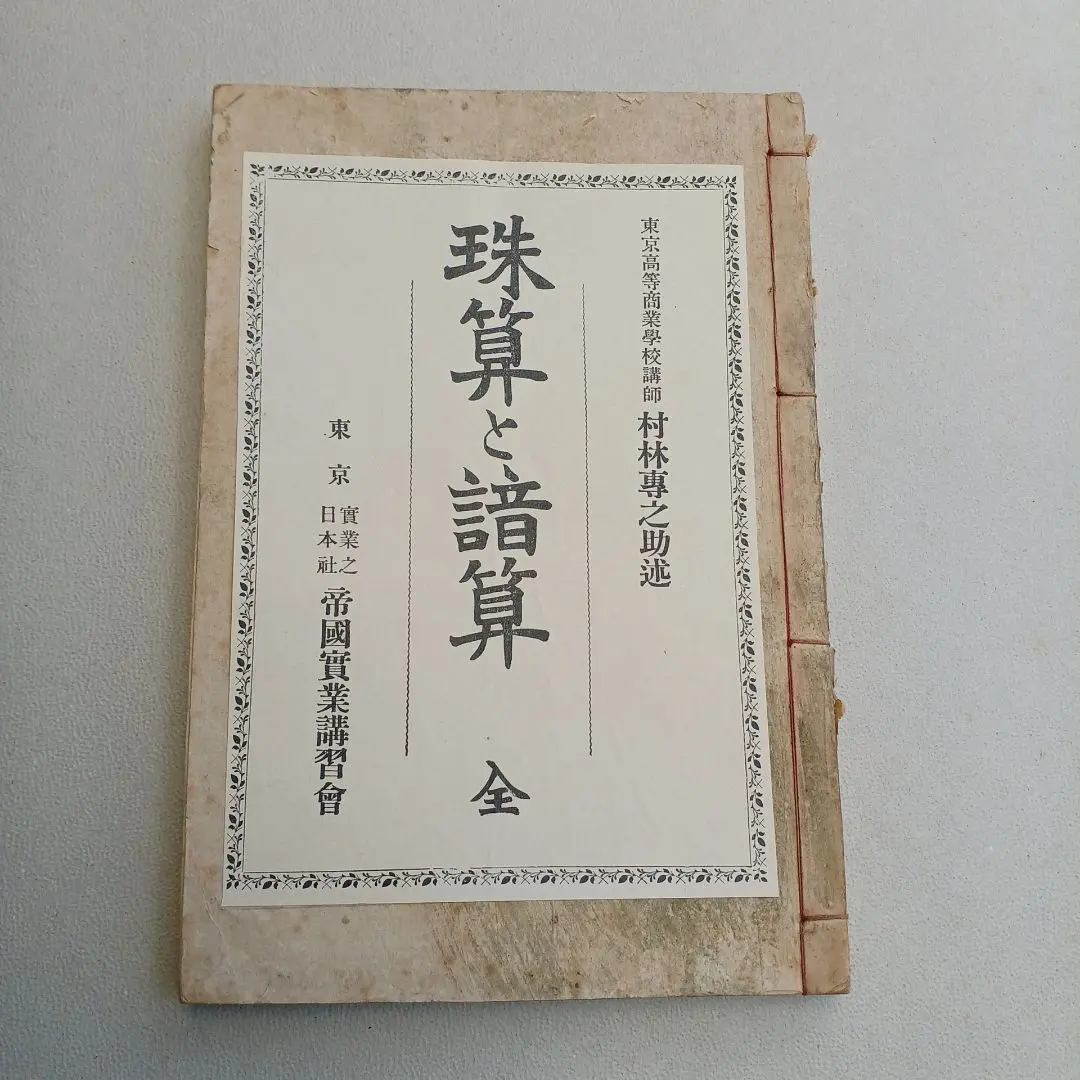 東京高等商業學校講師 村林專之助述
珠算と諳算 全
東京 實業之日本社 帝國實業講習會